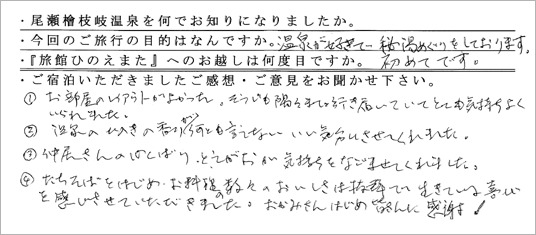 ・尾瀬檜枝岐温泉を何でお知りになりましたか。
・今回のご旅行の目的はなんですか。温泉が好きで秘湯めぐりをしております。
・『旅館ひのえまた』へのお越しは何度目ですか。 初めてです。
・ご宿泊いただきましたご感想・ご意見をお聞かせ下さい。
① お部屋のレイアウトがよかった。そうじも隅々まで行き届いていてとても気持ちよく
いられました。
② 温泉のひのきの香りが何とも言えないいい気分にさせてくれました。
③ 仲居さんの気くばり、えがおが気持ちをなごませてくれました。
④ たちそばをはじめ、お料理の数々のおいしさは抜群で生きている喜び
を感じさせていただきました。おかみさんはじめ皆さんに感謝!